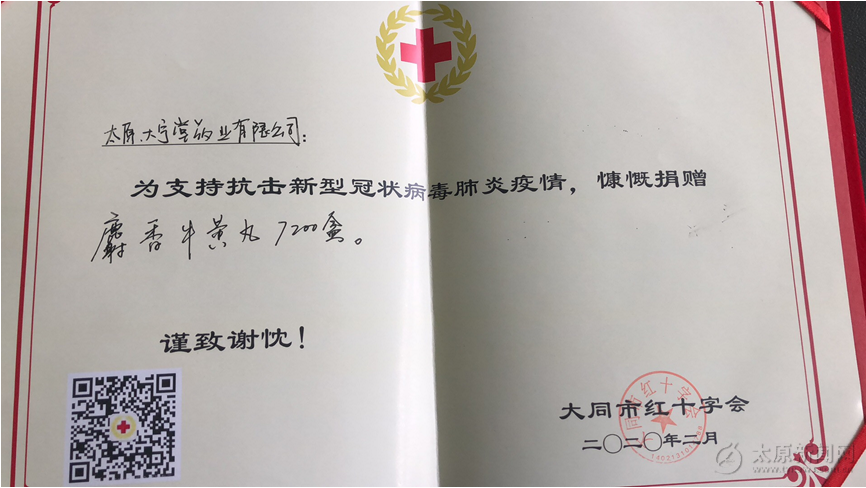 太原大宁堂药业有限公司：
为支持抗击新型冠状病毒肺炎疫情，慷慨捐赠
麝香牛黄丸7200盒。
谨致谢忱！
大同市红十字会
二〇二〇年二月
大同市红十字会
太原新闻网